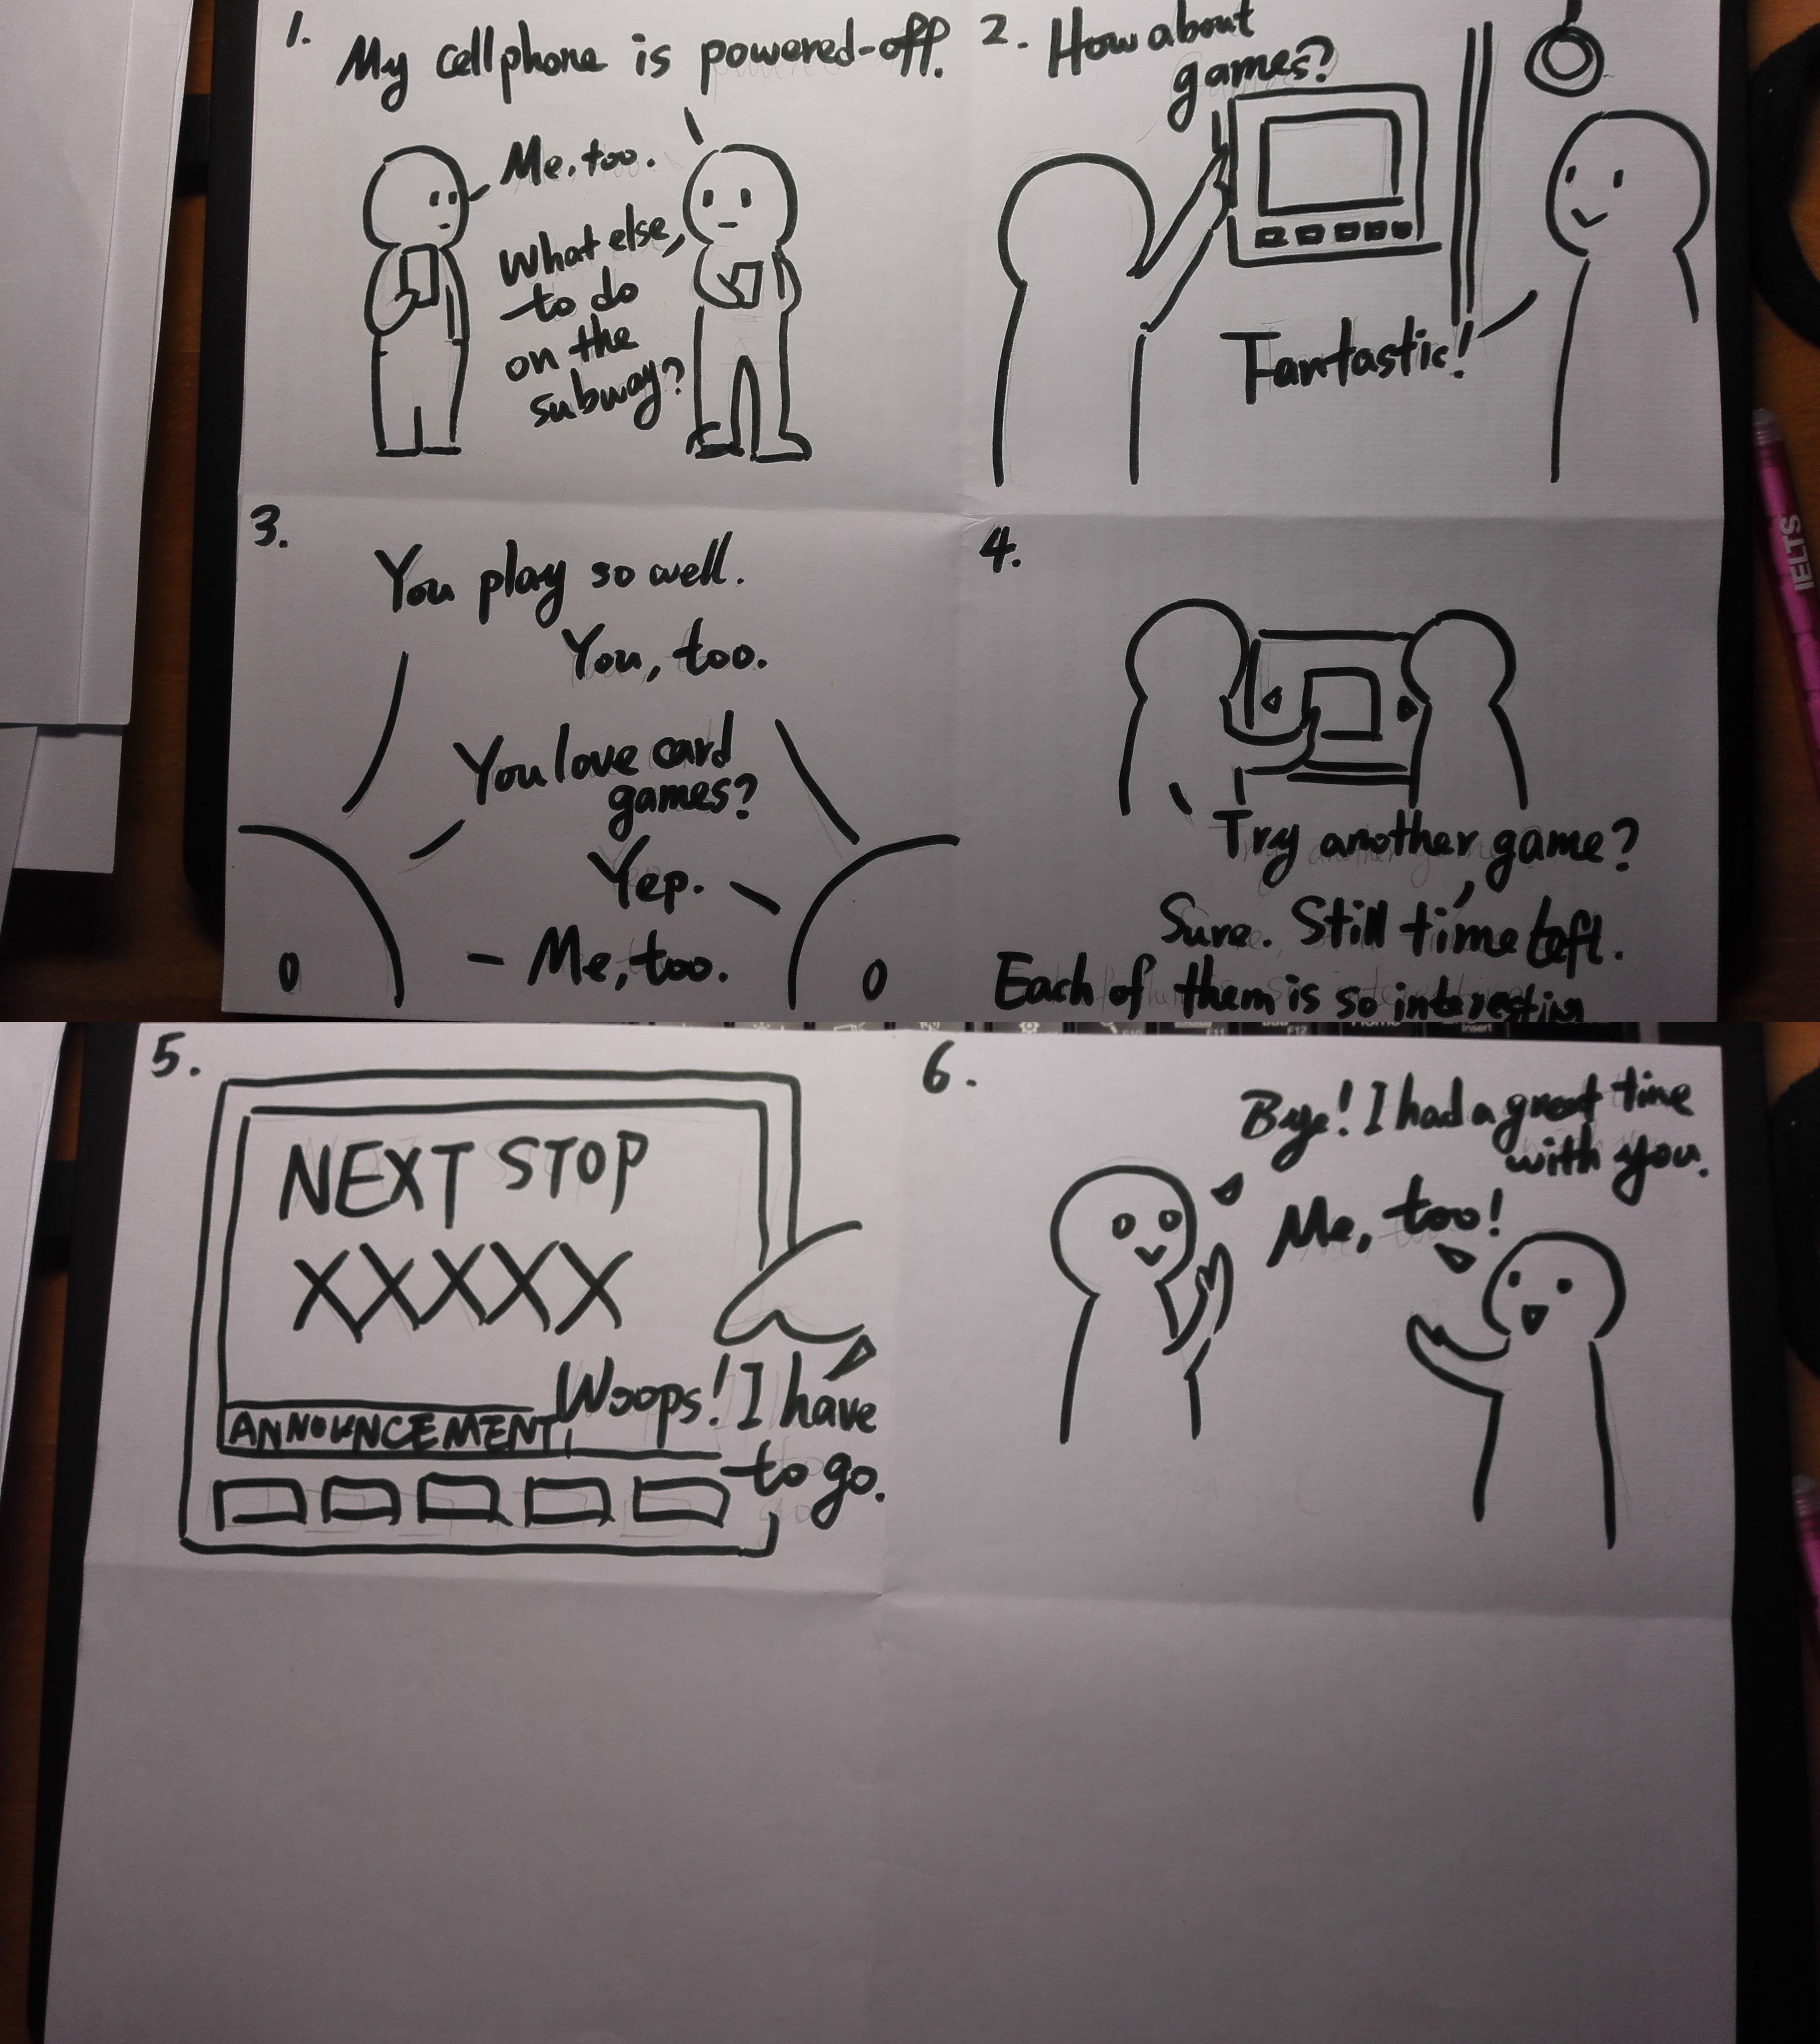 1.
My cellphone is powered-off.
Me, too.
What else,
to do
on the
subway?
2. How about
games?
Fantastic!
3.
You play so well.
You, too.
You love card
games?
Yep.
- Me, too.
4.
Try another game?
Sure. Still time left.
Each of them is so interestin
IELTS
F10
F11
F12
Home
Insert
5.
NEXT STOP
XXXXX
ANNOUNCEMENT
Woops! I have
to go.
6.
Bye! I had a great time
with you.
Me, too!